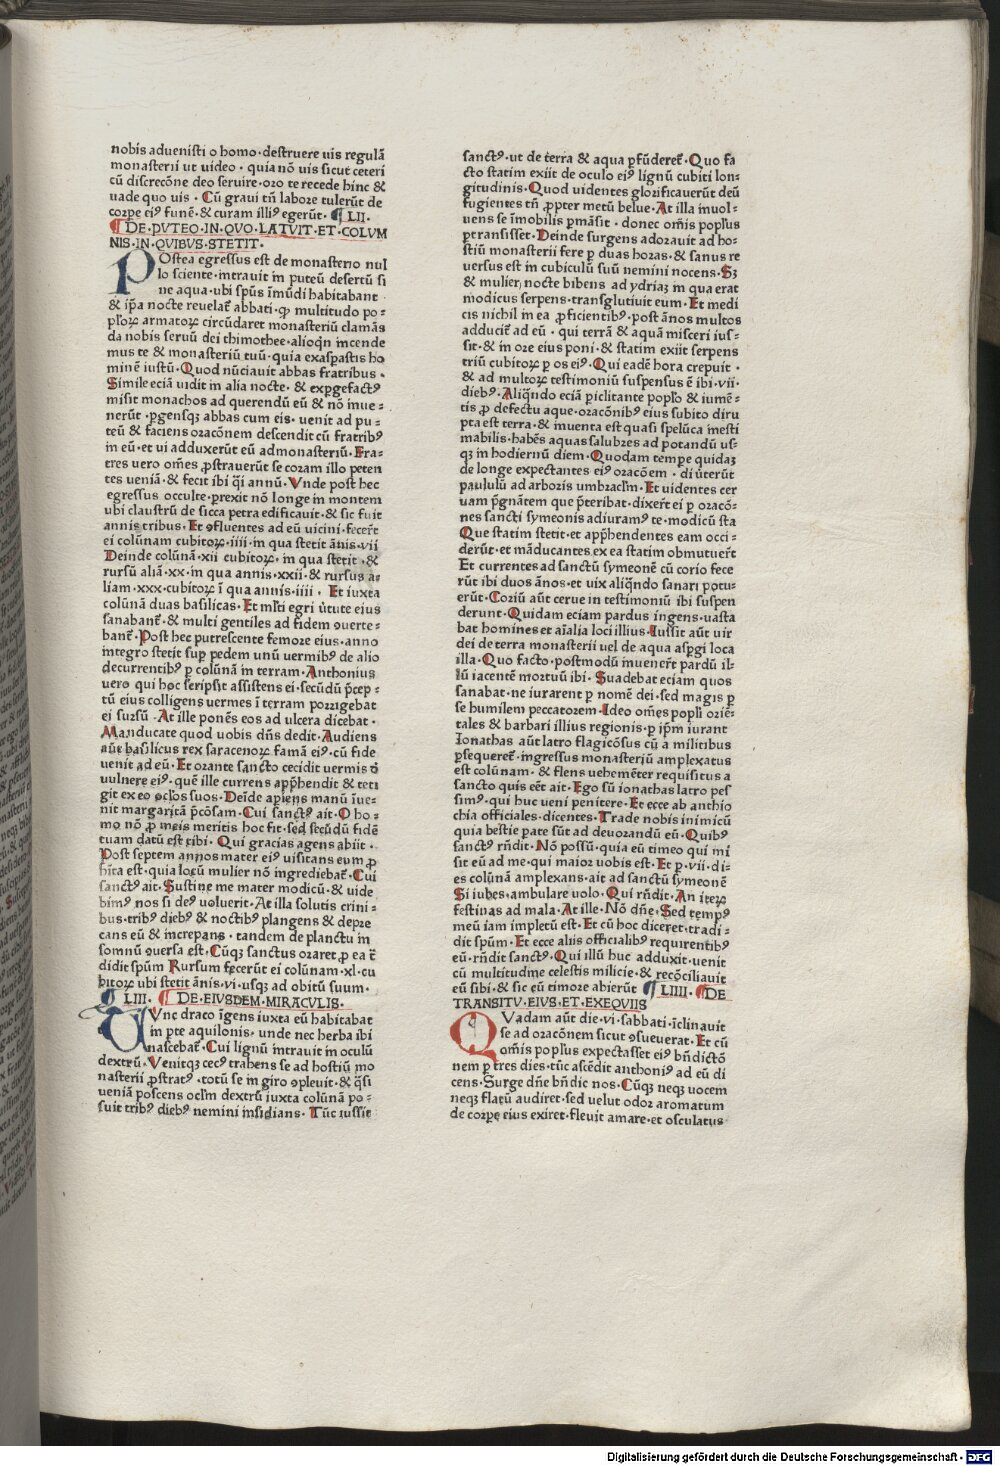 nobis aduenisti o homo·destruere uis regulā
monasterii ut uideo·quia nō uis sicut ceteri
cū discrecōne deo seruire·oro te recede hinc &
uade quo uis·Cū graui tn̄ labore tulerūt de
corpe ei⁹ funē·& curam illi⁹ egerūt·¶LII·
¶DE·PVTEO·IN·QVO·LATVIT·ET·COLVM
NIS·IN·QVIBVS·STETIT·
POstea egressus est de monasterio nul
lo sciente·intrauit in puteū desertū si
ne aqua·ubi spūs īmūdi habitabant·
& ip̄a nocte reuelat̄ abbati·ꝙ multitudo po-
pl'oꝝ armatoꝝ circūdaret monasteriū clamās
da nobis seruū dei thimothee·alioqn̄ incende
mus te & monasteriū tuū·quia exaspastis ho
minē iustū·Quod nūciauit abbas fratribus·
Simile eciā uidit in alia nocte·& exꝑgefact⁹
misit monachos ad querendū eū & nō inue-
nerūt·ꝑgensqꝫ abbas cum eis·uenit ad pu-
teū & faciens oracōnem descendit cū fratrib⁹
in eū·et ui adduxerūt eū admonasteriū·Fra-
tres uero om̄es ꝓstrauerūt se coram illo peten
tes ueniā·& fecit ibi q̄i annū·Vnde post hec
egressus occulte·ꝑrexit nō longe in montem
ubi claustrū de sicca petra edificauit·& sic fuit
annis tribus·Et ꝯfluentes ad eū uicini·fecer̄t
ei colūnam cubitoꝝ·iiii·in qua stetit ānis·vii
Deinde colūnā·xii cubitoꝝ·in qua stetit·&
rursū aliā·xx·in qua annis·xxii·& rursus a-
liam·xxx·cubitoꝝ ī qua annis·iiii·Et iuxta
colūnā duas basilicas·Et ml'ti egri ūtute eius
sanabant̄·& multi gentiles ad fidem ꝯuerte-
bant̄·Post hec putrescente femore eius·anno
integro stetit suꝑ pedem unū uermib⁹ de alio
decurrentib⁹ ꝑ colūnā in terram·Anthonius
uero qui hoc scripsit assistens ei·secūdū p̄cep-
tū eius colligens uermes ī terram porrigebat
ei sursū·At ille ponēs eos ad ulcera dicebat·
Manducate quod uobis dn̄s dedit·Audiens
aūt basilicus rex saracenoꝝ famā ei⁹·cū fide
uenit ad eū·Et orante sancto cecidit uermis ō
uulnere ei⁹·quē ille currens app̄hendit & teti
git ex eo oc'los suos·Deīde apiens manū īue-
nit margaritā p̄cōsam·Cui sanct⁹ ait·O ho-
mo nō ꝓ meis meritis hoc fit·sed secūdū fidē
tuam datū est tibi·Qui gracias agens abiit·
Post septem annos mater ei⁹ uisitans eum ꝓ
hīta est·quia locū mulier nō ingrediebat̄·Cui
sanct⁹ ait·Sustine me mater modicū·& uide
bim⁹ nos si de⁹ uoluerit·At illa solutis crini-
bus·trib⁹ dieb⁹ & noctib⁹ plangens & depre
cans eū & increpans·tandem de planctu in
somnū ꝯuersa est·Cūqꝫ sanctus oraret ꝓ ea t̄
didit spūm Rursum fecerūt ei colūnam·xl·cu
bitoꝝ ubi stetit ānis·vi·usqꝫ ad obitū suum·
¶LIII·¶DE·EIVSDEM·MIRACVLIS·
TVnc draco īgens iuxta eū habitabat
in ꝑte aquilonis·unde nec herba ibi
nascebat̄·Cui lignū intrauit in oculū
dextrū·Venitqꝫ cec⁹ trahens se ad hostiū mo
nasterii ꝓstrat⁹·totū se in giro ꝯpleuit·& q̄si
ueniā poscens oc'lm dextrū iuxta colūnā po-
suit trib⁹ dieb⁹ nemini insidians·Tūc iussit
sanct⁹·ut de terra & aqua ꝑfūderet̄·Quo fa
cto statim exiit de oculo ei⁹ lignū cubiti lon-
gitudinis·Quod uidentes glorificauerūt deū
fugientes tn̄ ꝓpter metū belue·At illa inuol-
uens se īmobilis ꝑmāsit·donec om̄is popl'us
ꝑtransisset·Deinde surgens adorauit ad ho-
stiū monasterii fere ꝑ duas horas·& sanus re
uersus est in cubiculū suū nemini nocens·Sꝫ
& mulier nocte bibens ad ydriaꝫ in qua erat
modicus serpens·transglutiuit eum·Et medi
cis nichil in ea ꝓficientib⁹·post ānos multos
adducit̄ ad eū·qui terrā & aquā misceri ius-
sit·& in ore eius poni·& statim exiit serpens
triū cubitoꝝ ꝑ os ei⁹·Qui eadē hora crepuit·
& ad multoꝝ testimoniū suspensus ē ibi·vii·
dieb⁹·Aliqn̄do eciā ꝑiclitante popl'o & iumē-
tis ꝓ defectu aque·oracōnib⁹ eius subito diru
pta est terra·& inuenta est quasi spelūca inesti
mabilis·habēs aquas salubres ad potandū us-
qꝫ in hodiernū diem·Quodam tempe quidaꝫ
de longe expectantes ei⁹ oracōem·diūterūt
paululū ad arboris umbrac'lm·Et uidentes cer
uam p̄gnātem que p̄teribat·dixer̄t ei ꝑ oracō-
nes sancti symeonis adiuram⁹ te·modicū sta
Que statim stetit·et app̄hendentes eam occi-
derūt·et māducantes ex ea statim obmutuer̄t
Et currentes ad sanctū symeonē cū corio fece
rūt ibi duos ānos·et uix aliqn̄do sanari potu-
erūt·Coriū aūt cerue in testimoniū ibi suspen
derunt·Quidam eciam pardus ingens·uasta
bat homines et aīalia loci illius·Iussit aūt uir
dei de terra monasterii uel de aqua aspgi loca
illa·Quo facto·postmodū inuener̄t pardū il-
lū iacentē mortuū ibi·Suadebat eciam quos
sanabat·ne iurarent ꝑ nomē dei·sed magis ꝑ
se humilem peccatorem·Ideo om̄es popl'i oriē-
tales & barbari illius regionis·ꝑ ip̄m iurant
Ionathas aūt latro flagicōsus cū a militibus
ꝑsequeret̄·ingressus monasteriū amplexatus
est colūnam·& flens uehemēter requisitus a
sancto quis eēt ait·Ego sū ionathas latro pes
sim⁹·qui huc ueni penitere·Et ecce ab anthio
chia officiales·dicentes·Trade nobis inimicū
quia bestie ꝑate sūt ad deuorandū eū·Quib⁹
sanct⁹ rn̄dit·Nō possū·quia eū timeo qui mi
sit eū ad me·qui maior uobis est·Et ꝑ·vii·di-
es colūnā amplexans·ait ad sanctū symeonē
Si iubes·ambulare uolo·Qui rn̄dit·An iteꝝ
festinas ad mala·At ille·Nō dn̄e·Sed temp⁹
meū iam impletū est·Et cū hoc diceret·tradi-
dit spūm·Et ecce aliis officialib⁹ requirentib⁹
eū·rn̄dit sanct⁹·Qui illū huc adduxit·uenit
cū multitudine celestis milicie·& recōciliauit
eū sibi·& sic cū timore abierūt ¶LIIII·¶DE
TRANSITV·EIVS·ET·EXEQVIIS
QVadam aūt die·vi·sabbati·īclinauit
se ad oracōnem sicut ꝯsueuerat·Et cū
om̄is popl'us expectasset ei⁹ bn̄dictō
nem ꝑ tres dies·tūc ascēdit anthoni⁹ ad eū di
cens·Surge dn̄e bn̄dic nos·Cūqꝫ neqꝫ uocem
neqꝫ flatū audiret·sed uelut odor aromatum
de corpe eius exiret·fleuit amare·et osculatus
Digitalisierung gefördert durch die Deutsche Forschungsgemeinschaft - DFG